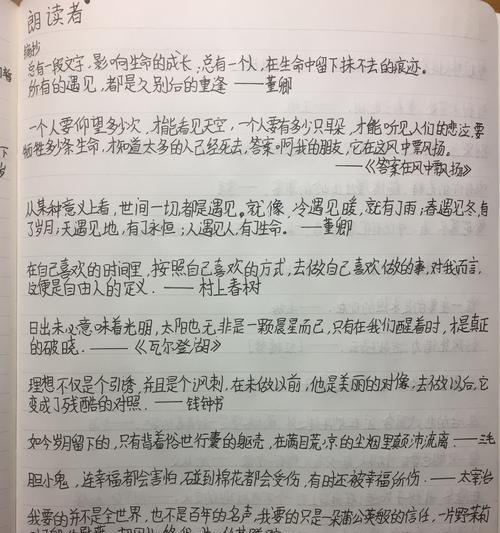 朗读者。
摘抄
总有一段文字，影响生命的成长；总有一个人，在生命中留下抹不去的痕迹。
所有的遇见，都是久别后的重逢 ——董卿
一个人要仰望多少次，才能看见天空，一个人要有多少只耳朵，才能听见人们的悲泣，要
牺牲多少条生命，才知道太多的人已经死去，答案啊我的朋友，它在这风中飘扬。
——《答案在风中飘扬》
从某种意义上看，世间一切，都是遇见。就像，冷遇见暖，就有了雨；春遇见冬，有
了岁月；天遇见地，有了永恒；人遇见人，有了生命。 ——董卿
在自己喜欢的时间里，按照自己喜欢的方式，去做自己喜欢做的事，对我而言，
这便是自由人的定义. —— 村上春树
日出未必意味着光明，太阳也无非是一颗晨星而已，只有在我们醒着时，才是真正
的破晓. ——《瓦尔登湖》
理想不仅是个引诱，并且是个讽刺，在未做以前，他是美丽的对像，去做以后，它
变成了残酷的对照. —— 钱钟书
如今岁月留下的，只有背着俗世行囊的躯壳，在满目荒凉的尘烟里颠沛流离 ——三毛
胆小鬼，连幸福都会害怕，碰到棉花都会受伤，有时还被幸福所伤. —— 太宰治
我要的并不是全世界，也不是百年的名声，我要的只是一朵蒲公英般的信任，一片野茉莉